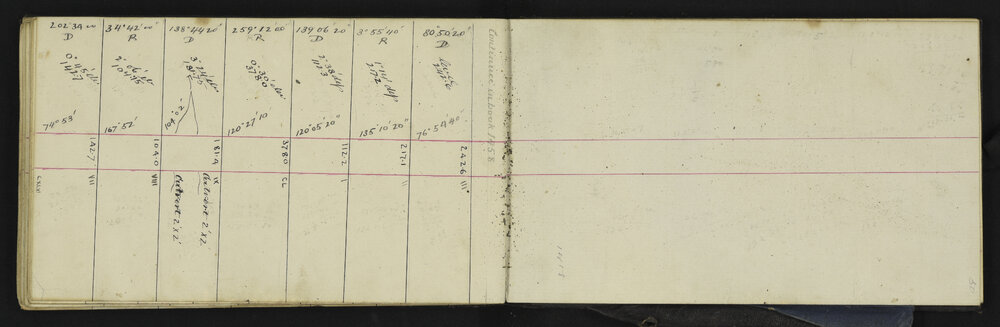 202°34'00
D
0°45' ele
142.7
74°53'
142.7
VII
34°42'00"
R
2°06' ele
104.75
167°52'
104.0
VIII
138°44'20"
D
3°24' ele
181.75
181.4
IX
Culvert 2'x2'
Culvert 2'x2'
259°12'00
R
0°30' ele
378.0
120°27'10
378.0
CL
139°06'20"
D
2°38' dep
112.3
120°05'20"
112.2
I
3°55'40"
R
217.2
135°10'20"
217.1
II
80°50'20"
D
242.6
76°54'40
242.6
III
Continued in book 1458